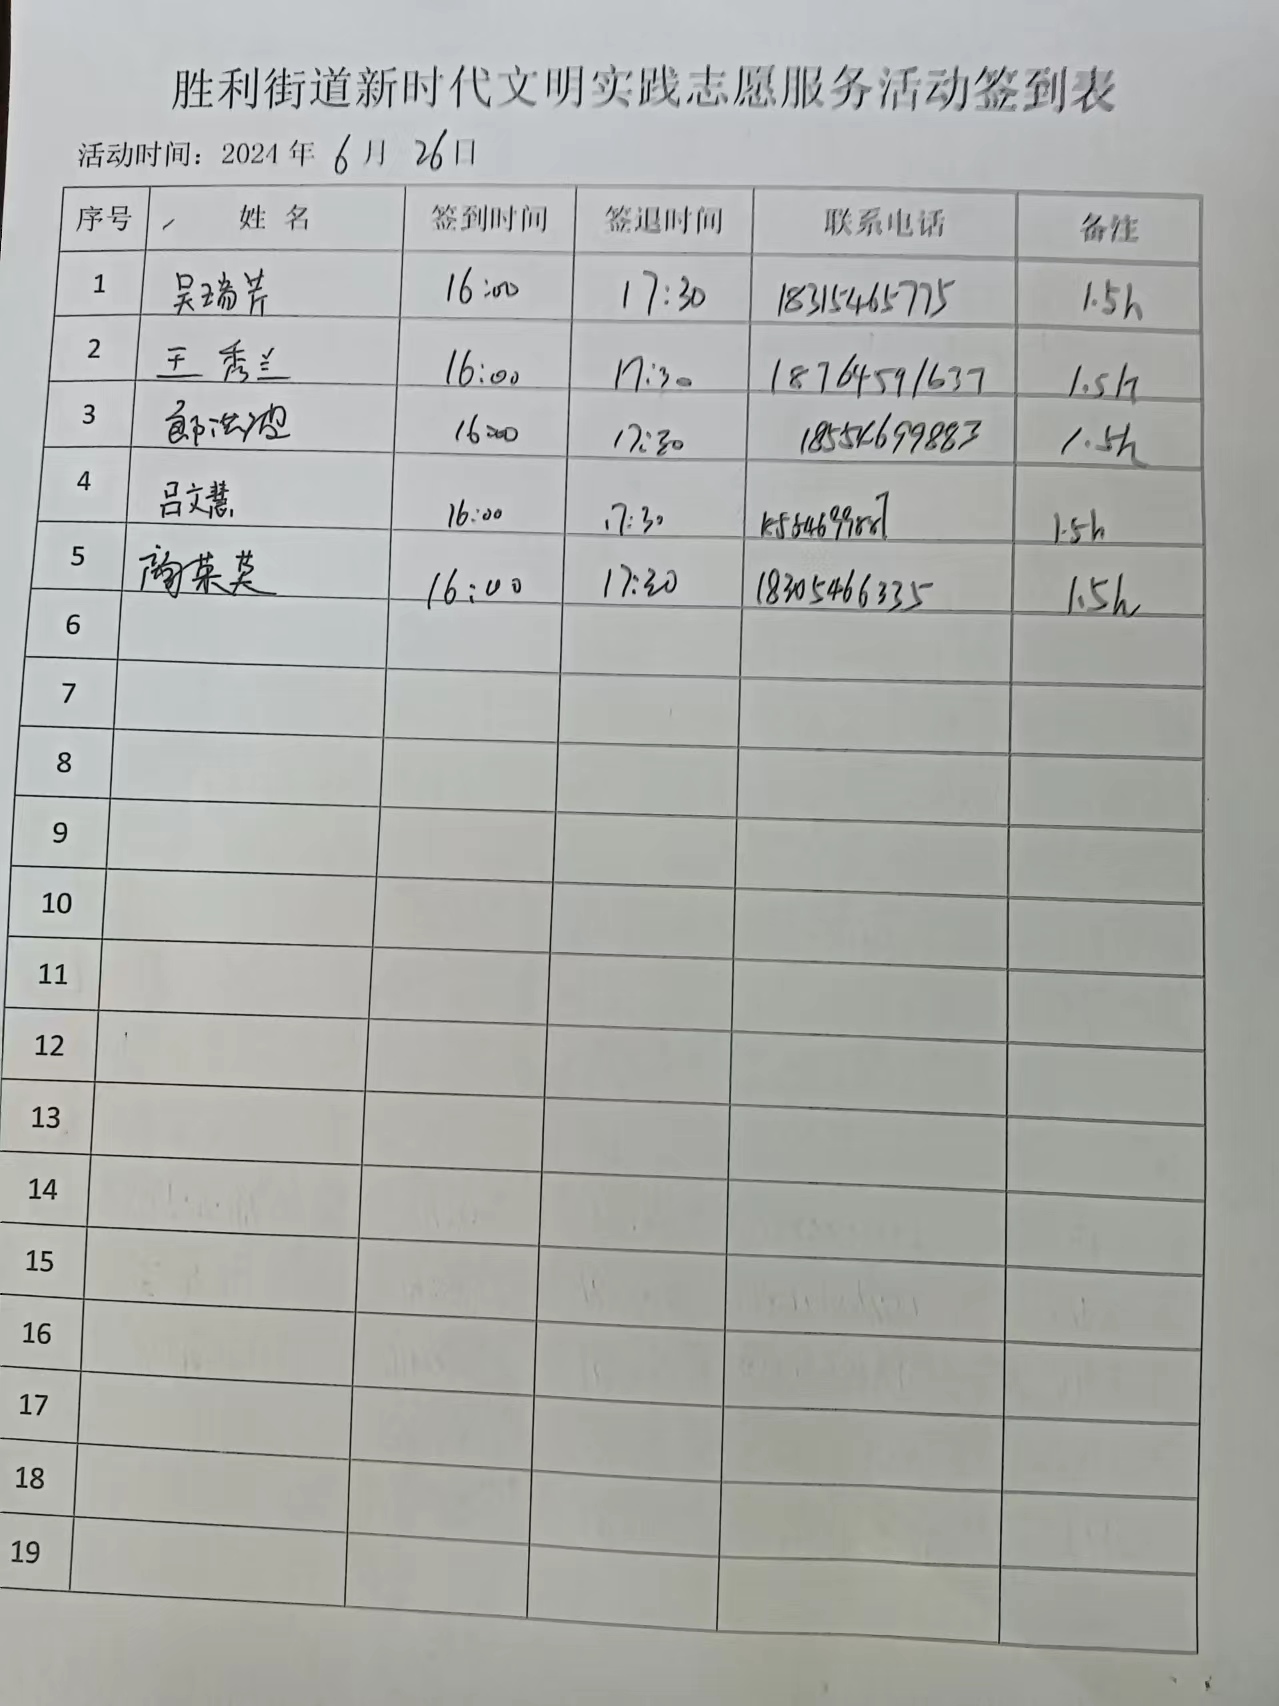 胜利街道新时代文明实践志愿服务活动签到表
活动时间：2024 年 6 月 26 日
序号 姓 名 签到时间 签退时间 联系电话 备注
1 吴瑞芹 16:00 17:30 18315465775 1.5h
2 王秀兰 16:00 17:30 18764591637 1.5h
3 16:00 17:30 18554699883 1.5h
4 吕文慧 16:00 17:30 1.5h
5 16:00 17:30 18305466335 1.5h
6
7
8
9
10
11
12
13
14
15
16
17
18
19